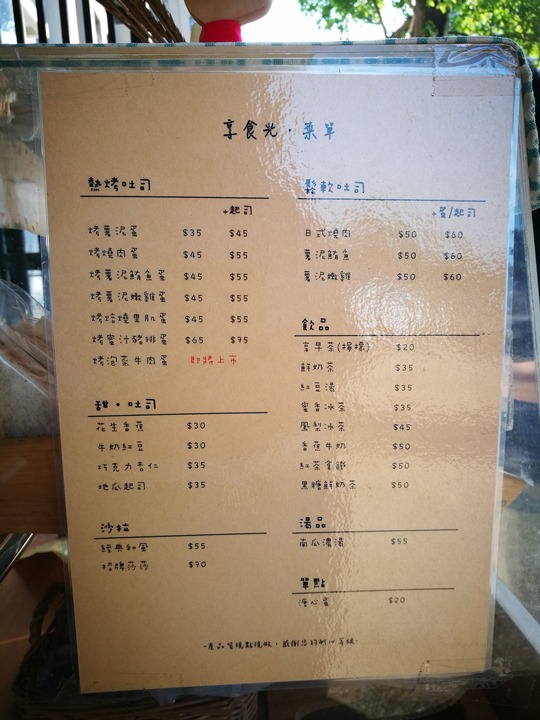 享食光·菜單
熱烤吐司
+起司
烤薯泥蛋 $35 $45
烤燒肉蛋 $45 $55
烤薯泥鮪魚蛋 $45 $55
烤薯泥嫩雞蛋 $45 $55
烤焙燒里肌蛋 $45 $55
烤蜜汁豬排蛋 $65 $75
烤泡菜牛肉蛋 即將上市
甜·吐司
花生香蕉 $30
牛奶紅豆 $30
巧克力杏仁 $35
地瓜起司 $35
沙拉
經典和風 $55
招牌莎莎 $70
鬆軟吐司
+蛋/起司
日式燒肉 $50 $60
薯泥鮪魚 $50 $60
薯泥嫩雞 $50 $60
飲品
享早茶(檸檬) $20
鮮奶茶 $35
紅豆湯 $35
蜜香冰茶 $35
鳳梨冰茶 $45
香蕉牛奶 $50
紅茶拿鐵 $50
黑糖鮮奶茶 $50
湯品
南瓜濃湯 $55
單點
溏心蛋 $20
-產品皆現點現做,感謝您的耐心等候-